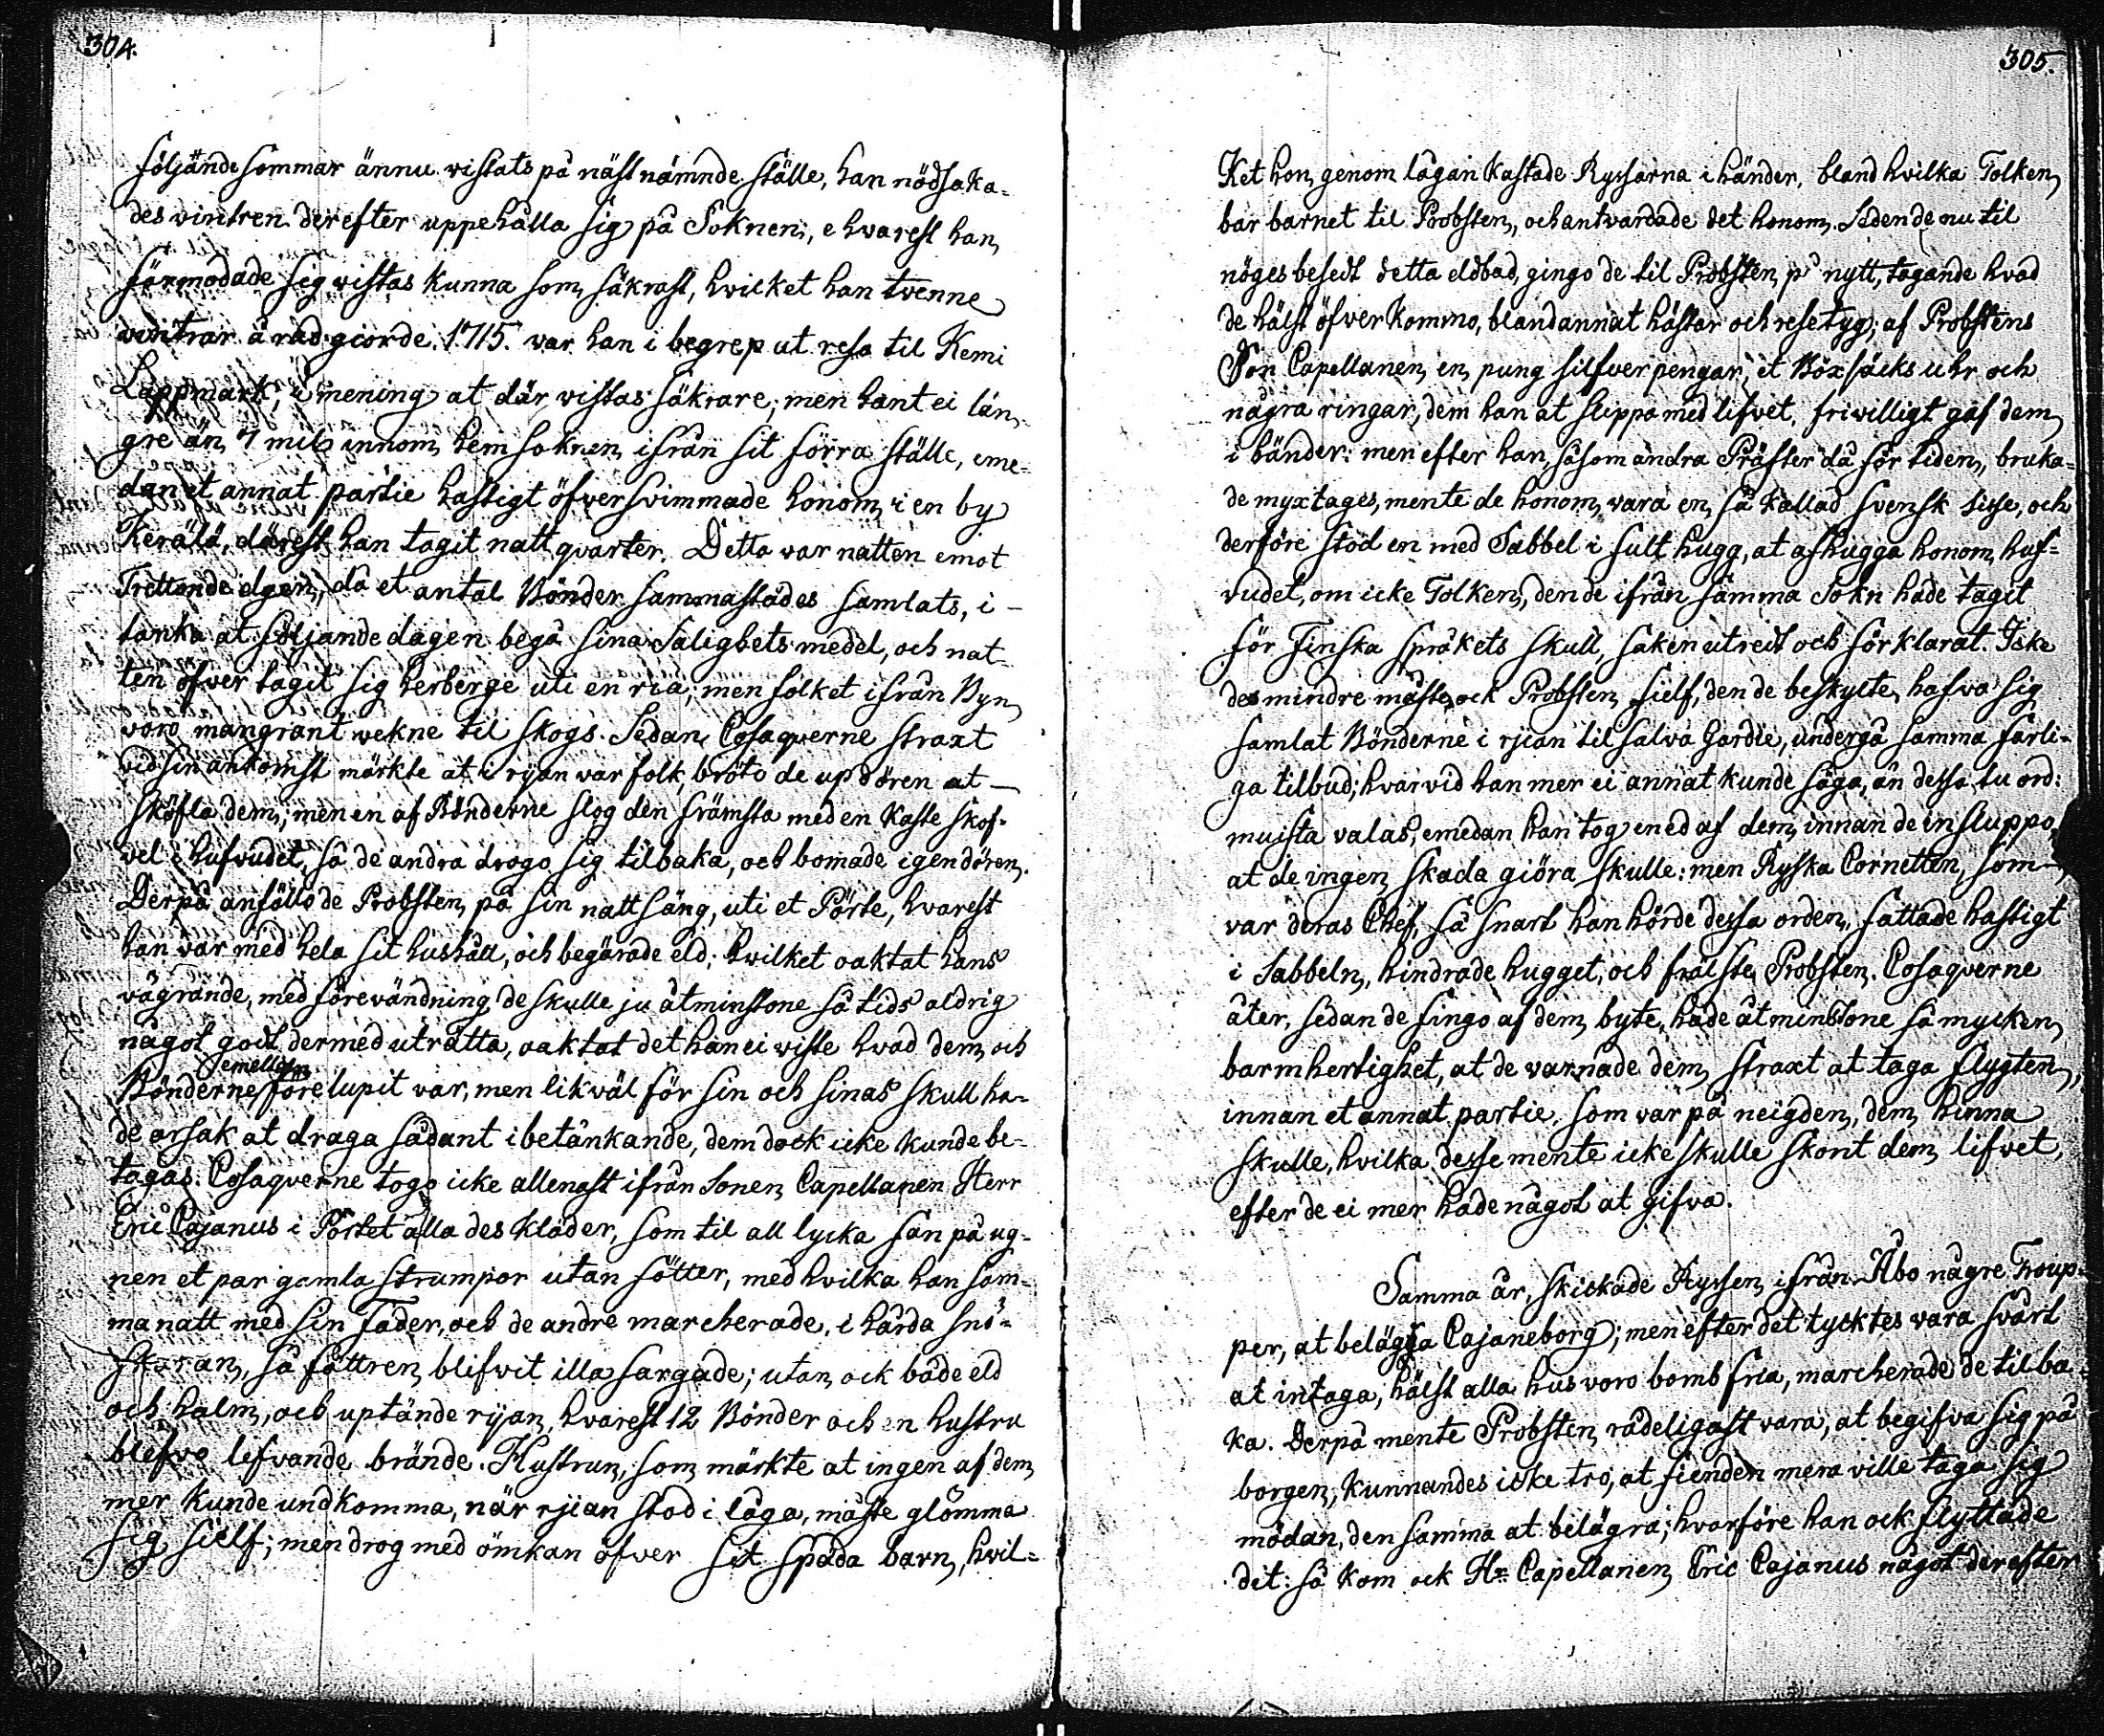 304.
följande sommar ännu vistats på näst nämnde ställe, han nödsaka-
des vintren derefter uppehålla sig på Soknen, hvarest han
förmodade sig vistas kunna som säkrast, hvilket han tvenne
vintrar å rad giorde. 1715. var han i begrep ut resa til Kemi
Lappmark, i mening at där vistas säkrare; men hant ei län-
gre än 7 mil innom hemsoknen ifrån sit förra ställe, eme-
dan et annat partie hastigt öfversvimmade honom, i en by
Kerälä, därest han tagit nattqvarter. Detta var natten emot
Trettonde dgen, då et antal Bönder sammastädes samlats, i-
tanka at följande dagen begå sina Salighets medel, och nat-
ten öfver tagit sig herberge uti en ria; men folket ifrån Byn
voro mangrant vekne til skogs. Sedan Cosaqverne straxt
vid sin ankomst märkte at i ryan var folk, bröto de up dören at
sköfla dem; men en af Bönderne slog den främsta med en Kaste skof-
vel i hufvudet, så de andra drogo sig tilbaka, och bomade igen dören.
Derpå anföllo de Probsten, på sin nattsäng, uti et Pörte, hvarest
han var med hela sit hushåll, och begärade eld; hvilket oaktat hans
vägrande, med förevändning de skulle ju åtminstone så tids aldrig
något godt dermed uträtta, oaktat det han ei viste hvad dem och
emellom
Bönderne förelupit var, men likväl för sin och sinas skull ha-
de orsak at draga sådant i betänkande, dem dock icke kunde be-
tagas. Cosaqverne togo icke allenast ifrån Sonen Capellanen Herr
Eric Cajanus i Pörtet alla des kläder, som til all lycka fan på ug-
nen et par gamla strumpor utan fötter, med hvilka han sam-
ma natt med sin Fader, och de andre marcherade, i hårda snö-
skaran, så föttren blifvit illa sargade; utan ock både eld
och halm, och uptände rijan, hvarest 12 Bönder och en hustru
blefvo lefvande brände. Hustrun, som märkte at ingen af dem
mer kunde undkomma, när rjian stod i låga, måste glömma
sig sielf; men drog med ömkan öfver sit späda barn, hvil-
305.
Ket hon genom lågan kastade Ryssarna i händer, bland hvilka Tolken
bar barnet til Probsten, och antvardade det honom. Seden de nu til
nöges besedt detta eldbad, gingo de til Probsten på nytt, tagande hvad
de hälst öfverkommo, bland annat hästar och resetyg; af Probstens
Son Capellanen, en pung silfverpengar, et Böxsäcks uhr och
några ringar, dem han at slippa med lifvet, friwilligt gaf dem
i händer: men efter han, såsom andra Präster då för tiden, bruka-
de myxtages, mente de honom vara en så kallad Svensk sisse, och
derföre stod en med Sabbel i fult hugg, at afhugga honom huf-
vudet, om icke Tolken, den de ifrån samma Sokn hade tagit
för Finska språkets skull, saken utredt och förklarat. Icke
desmindre måste ock Probsten sielf, den de beskylte hafva sig
samlat Bönderne i rjian til salva Gardie, undergå samma farli-
ga tilbud; hvarvid han mer ei annat kunde säga, än dessa tu ord:
muista valas, emedan han tog ened af dem, innan de insluppo
at de ingen skada giöra skulle: men Ryska Cornetten, som
var deras Chef, så snart han hörde dessa orden, fattade hastigt
i Sabbeln, hindrade hugget, och frälste Probsten. Cosaqverne
åter, sedan de fingo af dem byte, hade åtminstone så mycken
barmhertighet, at de varnade dem straxt at taga flygten,
innan et annat partie, som var på neigden, dem hinna
skulle, hvilka desse mente icke skulle skont dem lifvet,
efter de ei mer hade något at gifva.
Samma år, skickade Ryssen ifrån Åbo någre Troup-
per, at belägga Cajaneborg; men efter det tycktes vara svårt
at intaga, hälst alla hus voro bomb fria, marcherade de tilba-
ka. Derpå mente Probsten rådeligast vara, at begifva sig på
borgen, kunnandes icke tro, at fienden mera ville taga sig
mödan, den samma at belägra; hvarföre han ock flyttade
dit: så kom ock Hr. Capellanen Eric Cajanus något derefter